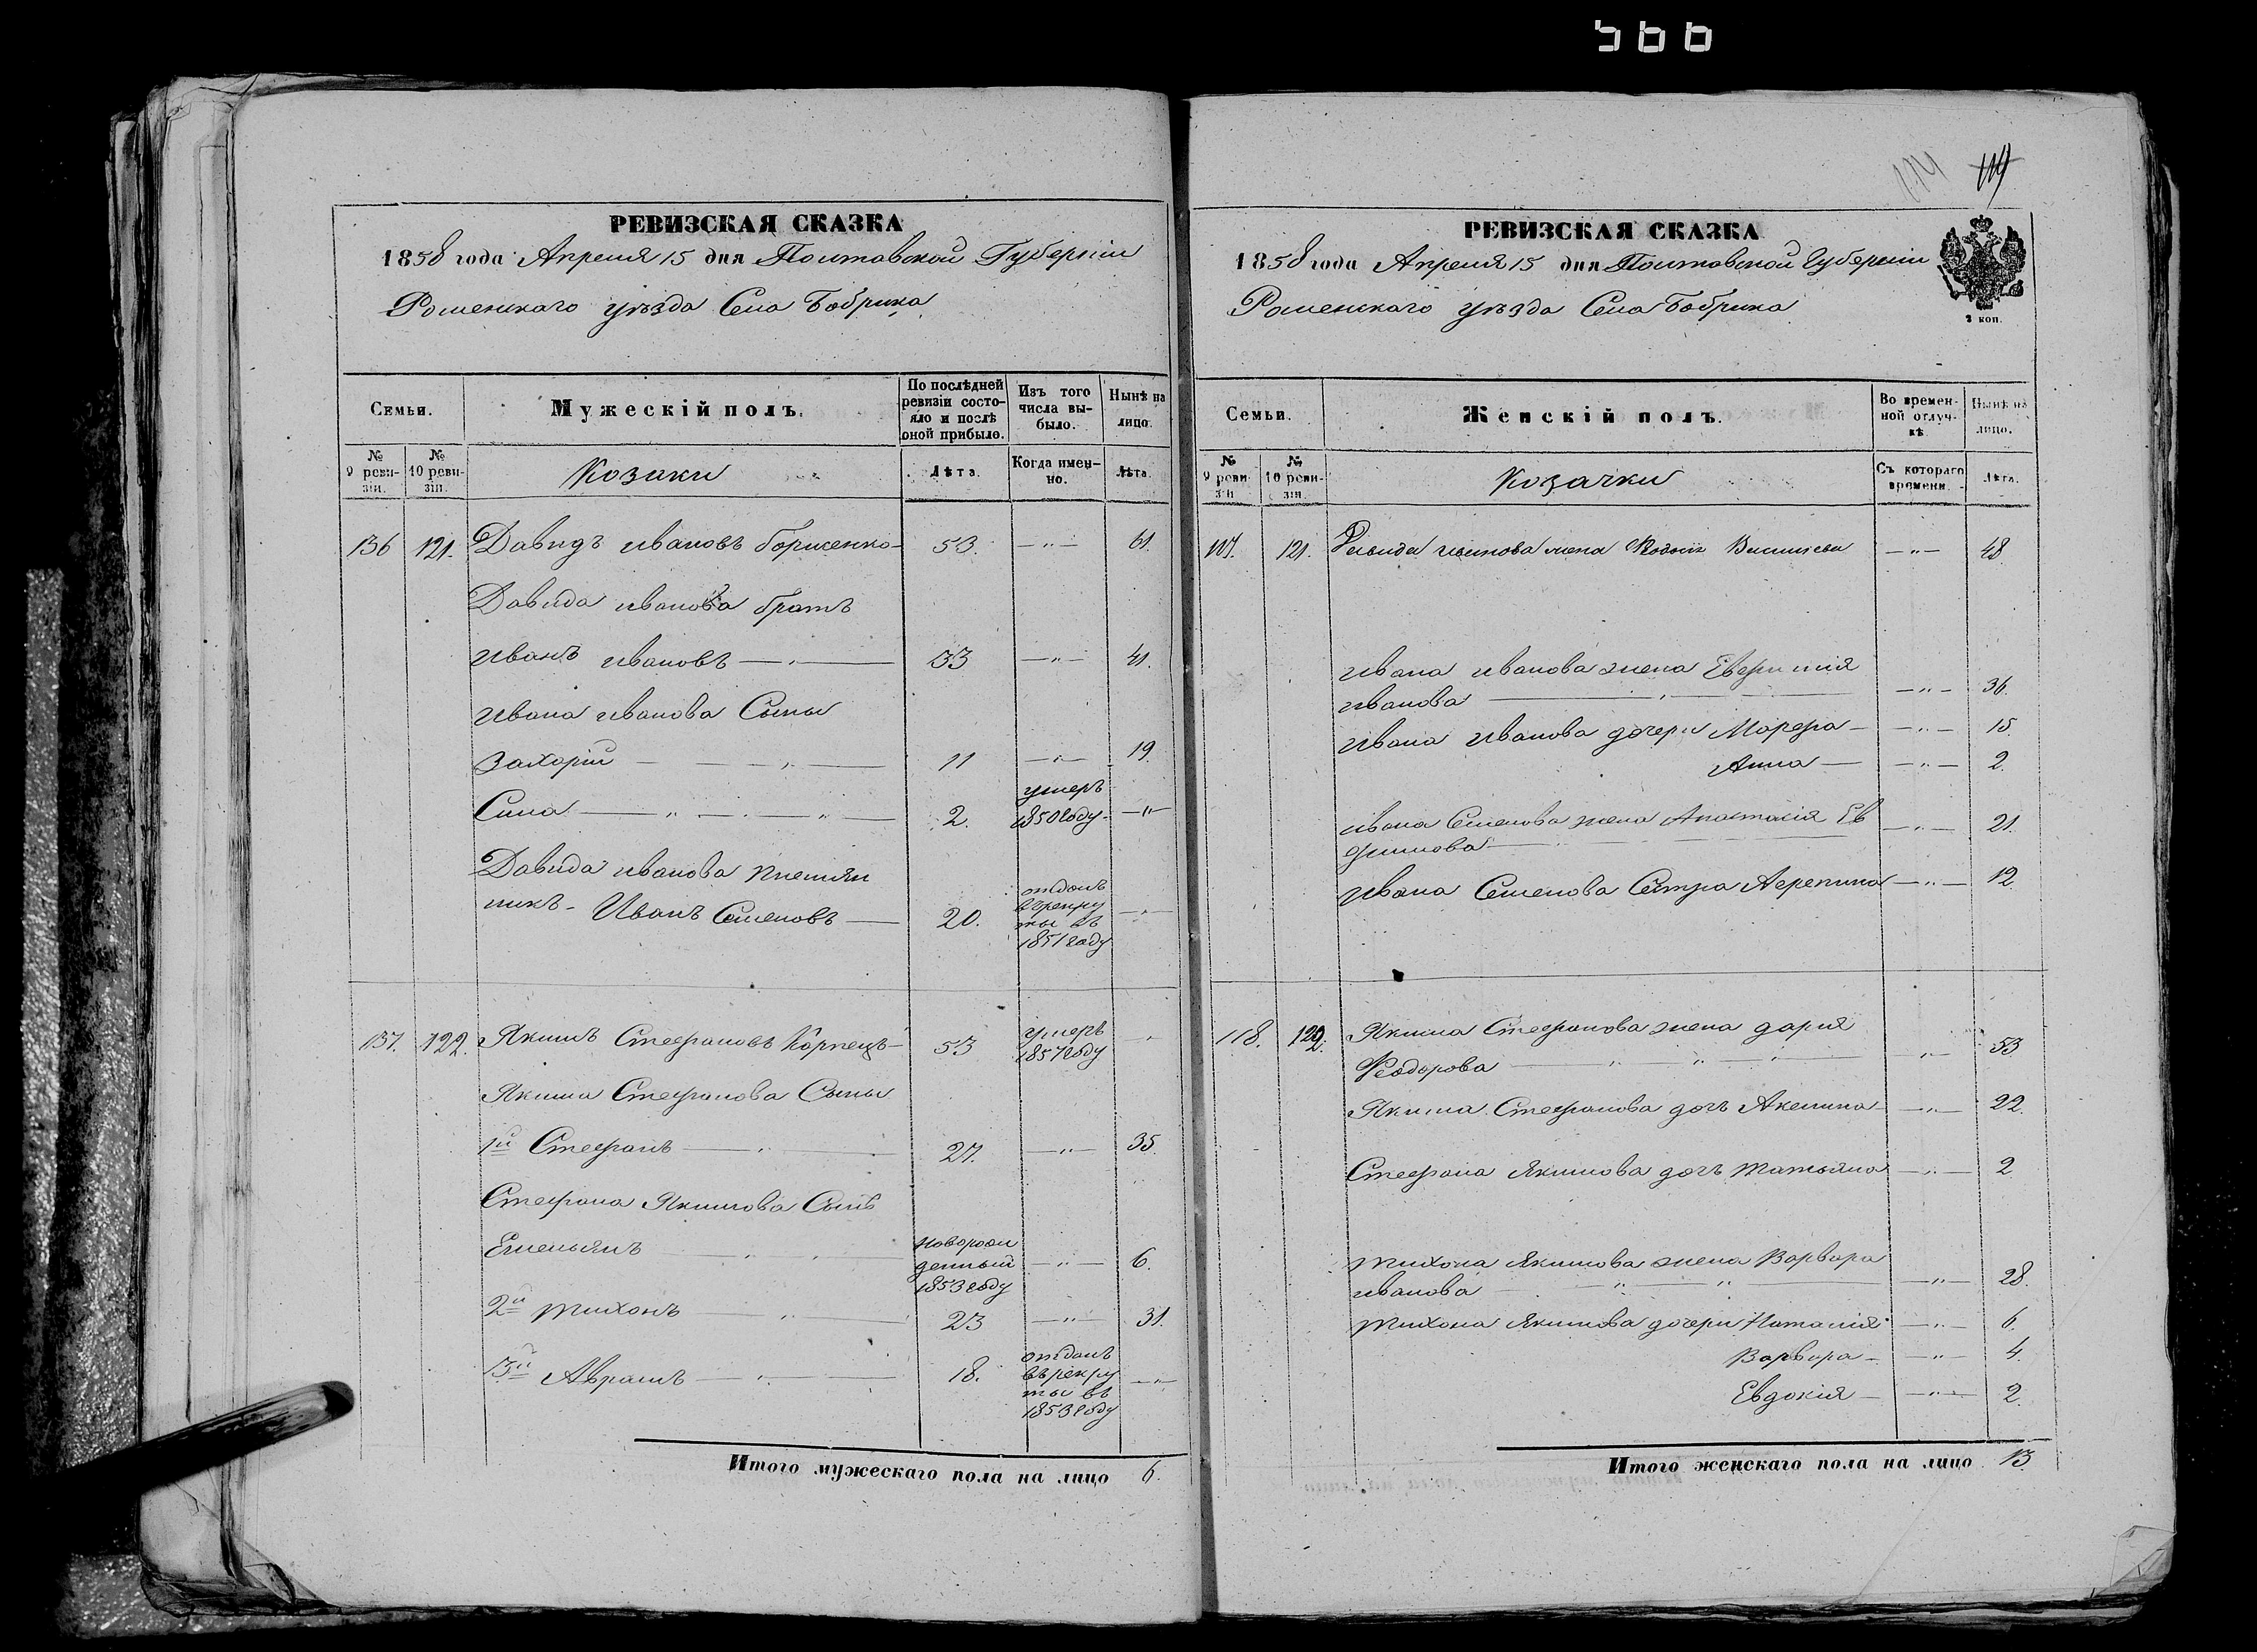 566
114
114
РЕВИЗСКАЯ СКАЗКА
1858 года Апреля 15 дня Полтавской Губерніи
Роменскаго уѣзда Села Бобрика
Семьи.
Мужескій полъ.
По послѣдней ревизіи состояло и послѣ оной прибыло.
Изъ того числа выбыло.
Нынѣ на лицо.
№ 9 ревизіи.
№ 10 ревизіи.
Козаки
Лѣта.
Когда именно.
Лѣта.
136 121. Давидъ Ивановъ Борисенко 53. —"— 61.
Давида Иванова братъ
Иванъ Ивановъ —"— 33 —"— 41.
Ивана Иванова Сыны
Захорій —"— 11 —"— 19.
Сила —"—"— 2. умеръ 1850 году —"—
Давида Иванова племян
никъ - Иванъ Семеновъ — 20. отданъ въ рекруты въ 1851 году —"—
137. 122. Якимъ Стефановъ Корнецъ 53 умеръ 1857 году "
Якима Стефанова Сыны
1й Стефанъ —"— 27. —"— 35.
Стефана Якимова Сынъ
Емельянъ —"—"— новорожденный 1853 году —"— 6.
2й Тихонъ —"— 23 —"— 31.
3й Аврамъ —"— 18. отданъ въ рекруты въ 1853 году —"—
Итого мужескаго пола на лицо 6.
РЕВИЗСКАЯ СКАЗКА
1858 года Апреля 15 дня Полтавской Губерніи
Роменскаго уѣзда Села Бобрика
2 коп.
Семьи.
Женскій полъ.
Во временной отлучкѣ
Нынѣ на лицо.
№ 9 ревизіи
№ 10 ревизіи.
Козачки
Съ котораго времени.
Лѣта.
117. 121. Давида Иванова жена Василіева —"— 48
Ивана Иванова жена
Иванова —"— —"— 36.
Ивана Иванова дочери Марфа — —"— 15.
Анна — —"— 2.
Ивана Семенова жена Анастасія Ев
фимова — —"— 21.
Ивана Семенова Сестра — —"— 12.
118. 122. Якима Стефанова жена Дарія
Феодорова —"—"—"— "— 53
Якима Стефанова дочь Акелина —"— 22.
Стефана Якимова дочь Татьяна —"— 2
Тихона Якимова жена Варвара
Иванова —"—"— —"— 28.
Тихона Якимова дочери Наталія —"— 6.
Варвара — —"— 4.
Евдокія — —"— 2.
Итого женскаго пола на лицо 13.